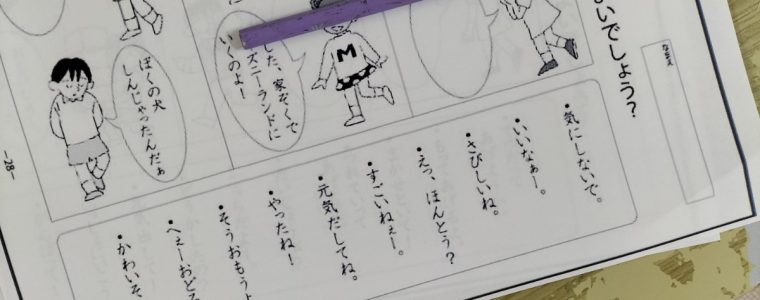 いでしょう？
なまえ
した、家ぞくで
ズニーランドに
いくのよー！
ぼくの犬
しんじゃったんだぁ
・気にしないで。
・いいなぁー。
・さびしいね。
・えっ、ほんとう？
・すごいねぇー。
・元気だしてね。
・やったね！
・そうおもうよ
・へぇーおどろ
・かわいそ
M
-28-